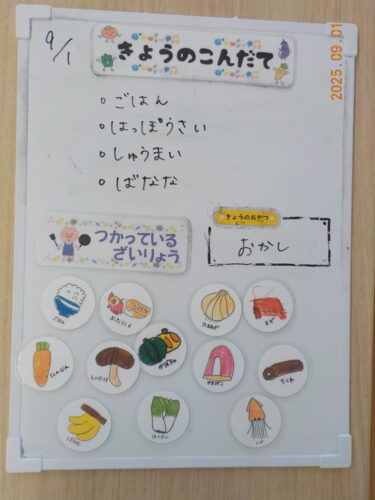 9/1
きょうのこんだて
2025.09.01
○ごはん
○はっぽうさい
○しゅうまい
○ばなな
つかっている
ざいりょう
きょうのおやつ
おかし
ごはん
ぶたにく
たまねぎ
えび
にんじん
しいたけ
かぼちゃ
かまぼこ
ちくわ
ばなな
はくさい
いか